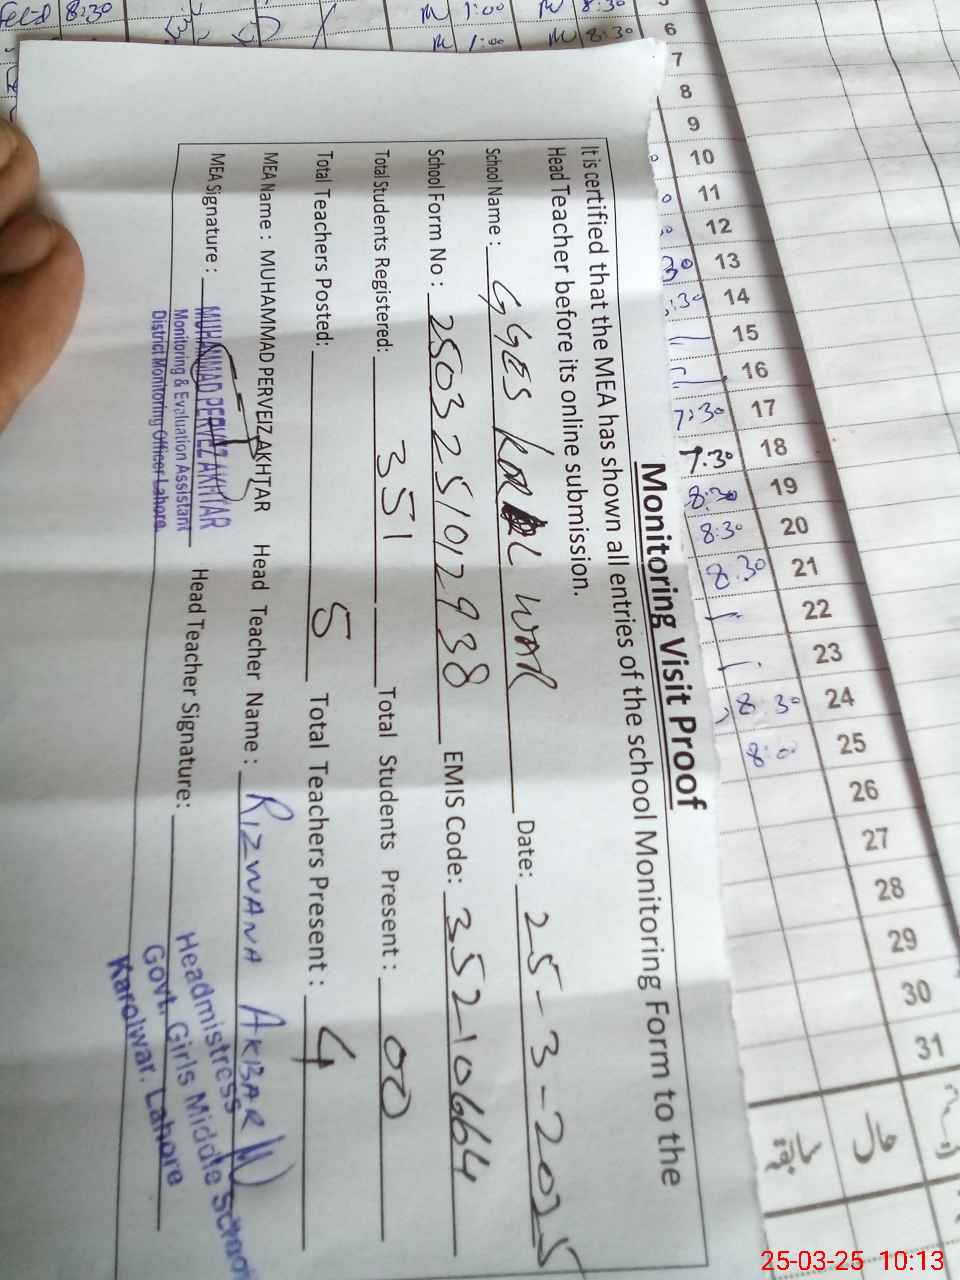 Monitoring Visit Proof
It is certified that the MEA has shown all entries of the school Monitoring Form to the
Head Teacher before its online submission.
School Name : GGES KOROL WAR Date: 25-3-2025
School Form No : 2503251012938 EMIS Code: 35210664
Total Students Registered: 351 Total Students Present : 00
Total Teachers Posted: 5 Total Teachers Present : 4
MEA Name : MUHAMMAD PERVEIZ AKHTAR Head Teacher Name : RIZWANA AKBAR
MEA Signature : Head Teacher Signature:
MUHAMMAD PERVEZ AKHTAR
Monitoring & Evaluation Assistant
District Monitoring Officer Lahore
Headmistress
Govt. Girls Middle School
Karolwar. Lahore
6
7
8
9
10
11
12
13
14
15
16
17 7:30
18 7.30
19 8:30
20 8:30
21 8:30
22
23
24 8:30
25 8:0
26
27
28
29
30
31
حال
سابقہ
8:30
1:00
8:30
1:00
8:30
25-03-25 10:13